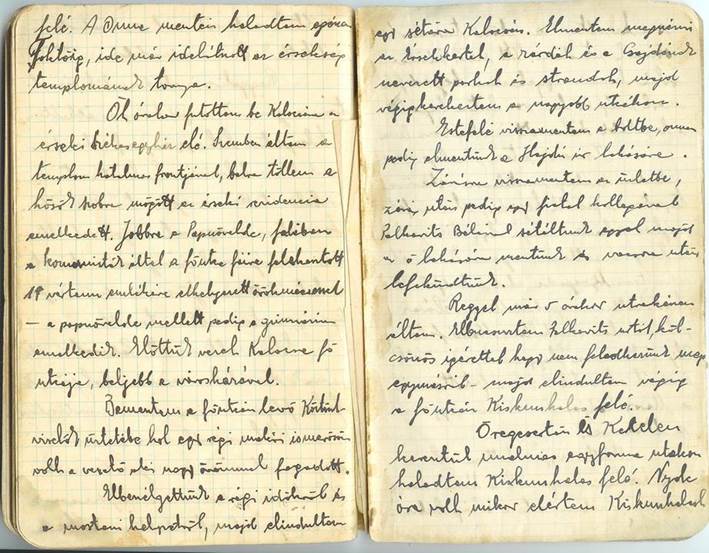 felé. A Duna mentén haladtam egészen
foktőig, ide már idelátszott az érsekség
templomának tornya.
Öt órakor futottam be Kalocsára a
érseki székesegyház elé. Szemben álltam a
templom hatalmas frontjával, balra tőlem a
hősök szobra mögött az érseki rezidencia
emelkedett. Jobbra a Papnövelde, falában
a komunisták által a főutca fáira felakasztott
19 vértanu emlékére elhelyezett örökmécsessel
— a papnövelde mellett pedig a gimnázium
emelkedik. Előttük vezet Kalocsa fő
utcája, beljebb a városházával.
Bementem a főutcán levő
üzletébe hol egy régi makói ismerősöm
volt a vezető aki nagy örömmel fogadott.
Elbeszélgettünk a régi időkről és
a mostani helyzetről, majd elindultam
egy sétára Kalocsán. Elmentem megnézni
az érsekkertet, a zárdát és a
nevezett parkot és strandot, majd
végigkerekeztem a nagyobb utcákon.
Estefelé visszamentem a boltba, onnan
pedig elmentünk a Hajdú úr lakására.
Zárásra visszamentem az üzletbe,
zárás után pedig egy fiatal kollegával
Bélával sétáltunk eggyet majd
az ő lakására mentünk és vacsora után
lefeküdtünk.
Reggel már 5 órakor utrakészen
álltam. Elbucsuztam köl-
csönös igérettel hogy nem feledkezünk meg
egymásról - majd elindultam végig
a főutcán Kiskunhalas felé.
Öregcsertőn és Kecelen
keresztül unalmas egyforma utakon
haladtam Kiskunhalas felé. Nyolc
óra volt mikor elértem Kiskunhalast